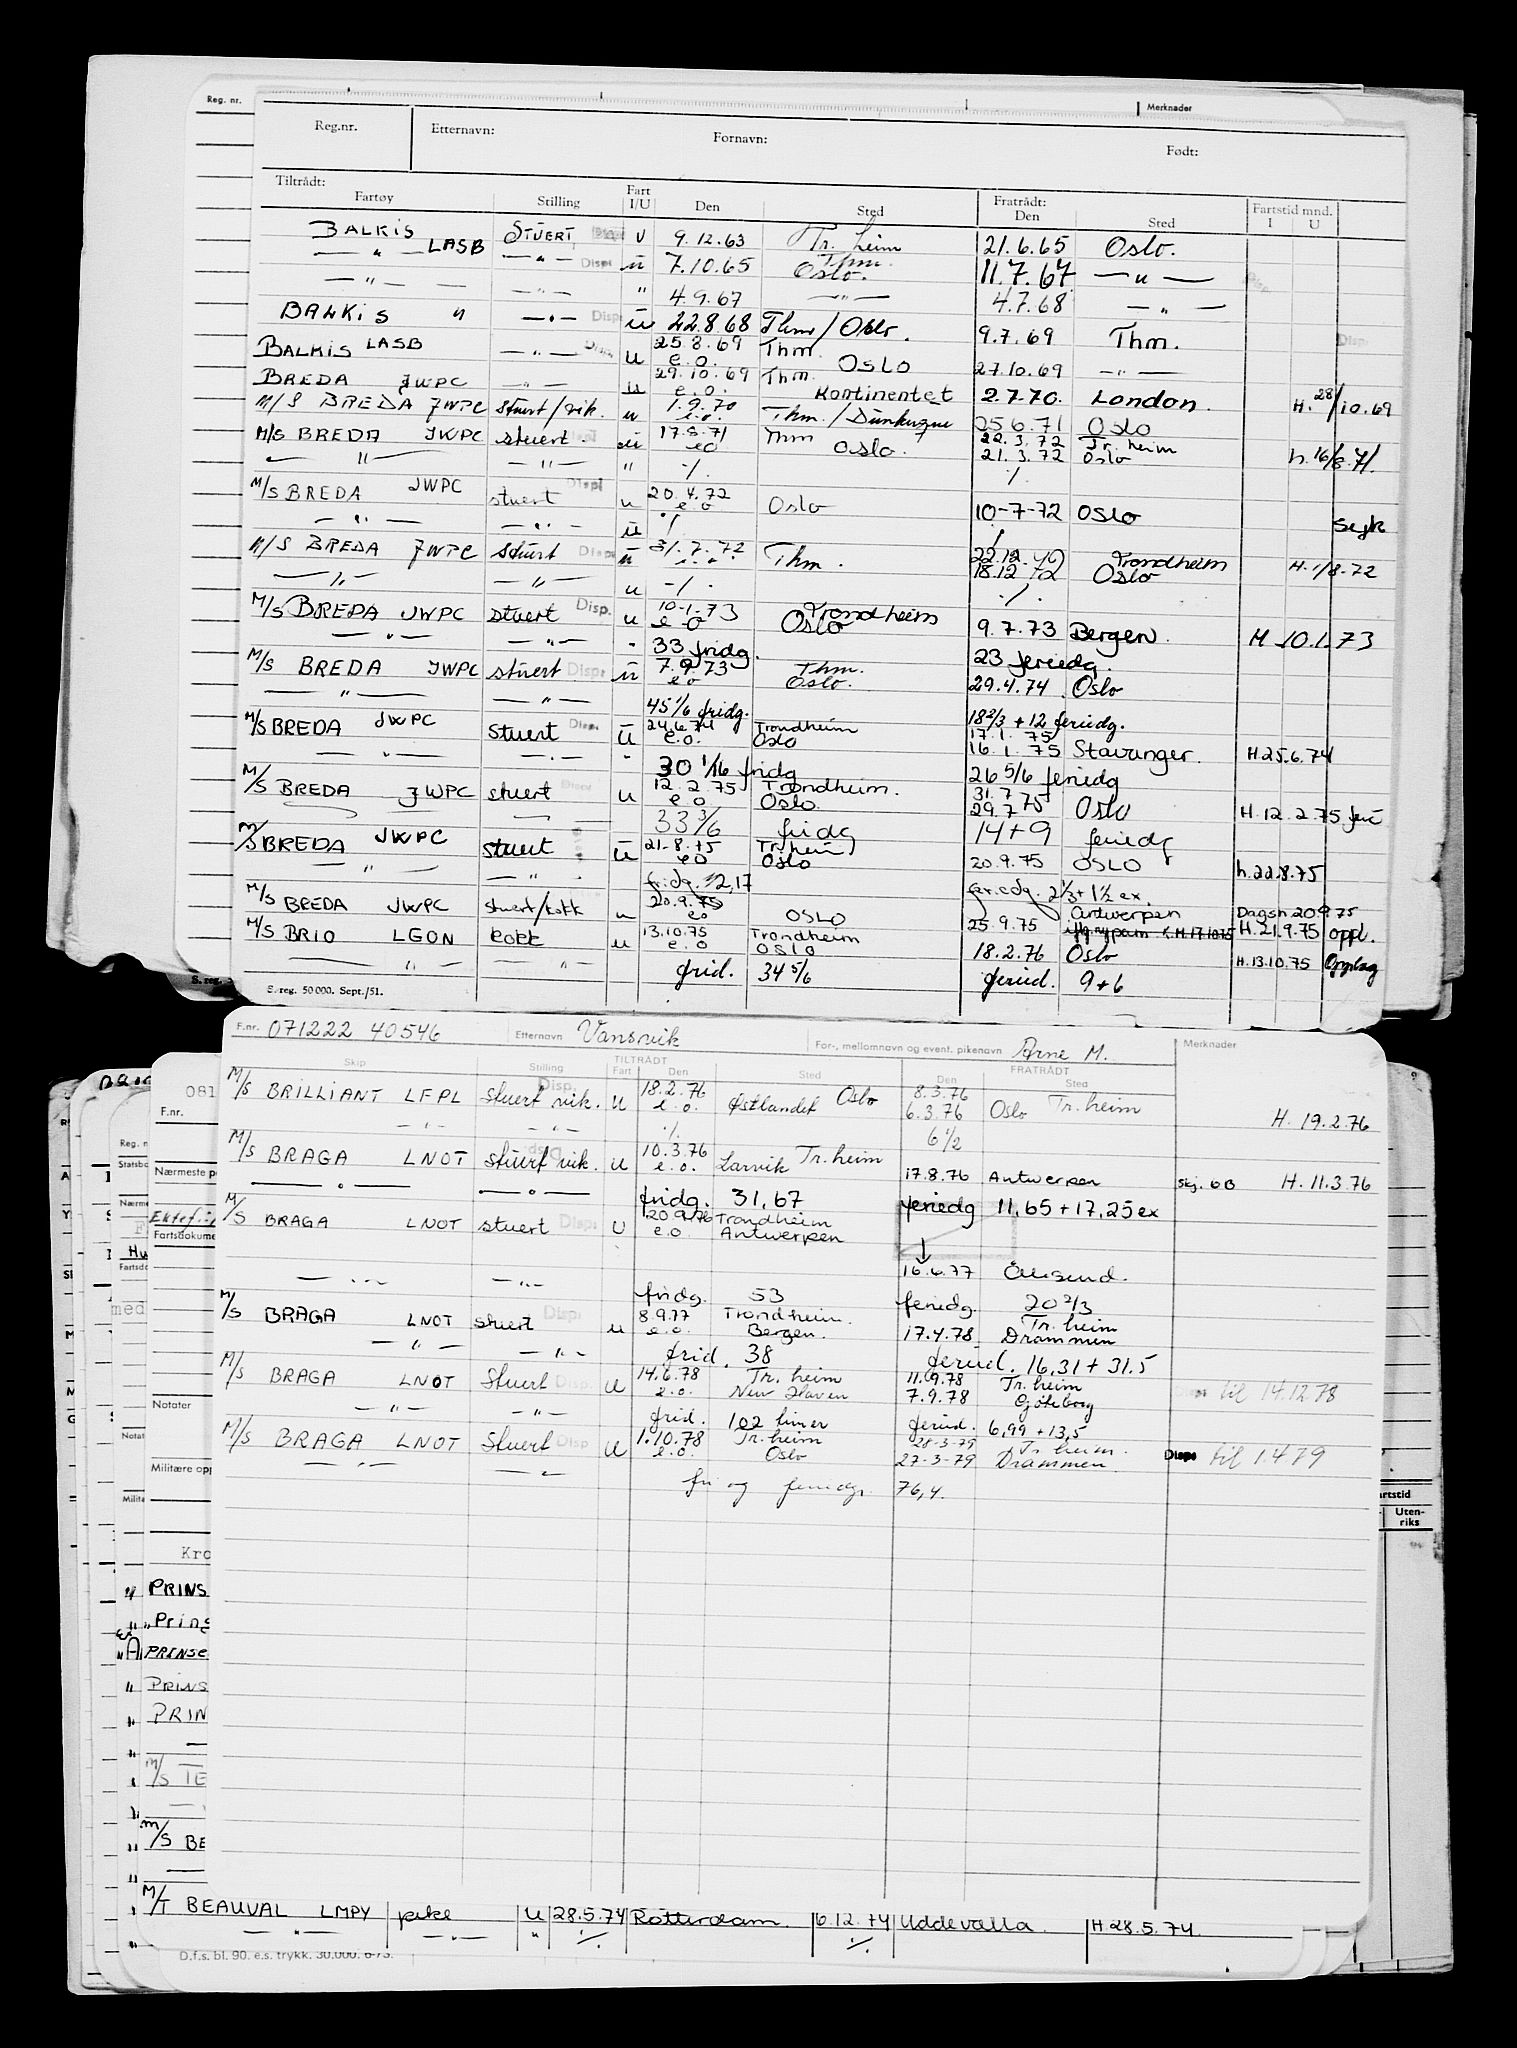 Reg. nr.
Merknader
Reg.nr. Etternavn: Fornavn: Født:
Tiltrådt: Fart Fratrådt: Fartstid mnd.
Fartøy Stilling I/U Den Sted Den Sted I U
BALKIS STUERT U 9.12.63 Tr. heim 21.6.65 Oslo.
— " — LASB — " — Disp. u 7.10.65 Thm. Oslo. 11.7.67 — " —
— " — — " — " 4.9.67 — " — 4.7.68 — " —
BALKIS " — " — Disp u 22.8.68 Thm/Oslo. 9.7.69 Thm. Disp
BALKIS LASB — " — Disp. u 25.8.69 e.o. Thm. Oslo 27.10.69 — " —
BREDA JWPC — " — u 29.10.69 e.o. Thm. Kontinentet 2.7.70. London. H. 28/10.69
M/S BREDA JWPC stuert/vik. u 1.9.70 e.o. Thm./Dunkerque 25.6.71 Oslo
M/S BREDA JWPC stuert. u 17.8.71 eo Thm Oslo. 22.3.72 Tr. heim 21.3.72 Oslo h. 16/8.71.
— " — — " — " ./. ./.
M/S BREDA JWPC stuert Disp u 20.4.72 e o Oslo 10-7-72 OSLO Sejk
— " — — " — u ./. ./.
M/S BREDA JWPC stuert Disp u 31.7.72 Thm. 22.12.72 Trondheim 18.12.72 Oslo H. 1/8-72
— " — — " — u ./. ./.
M/S BREDA JWPC stuert Disp. u 10-1-73 e o Trondheim Oslo 9.7.73 Bergen. H 10.1.73
— " — — " — " 33 fridg. 23 feriedg.
M/S BREDA JWPC stuert Disp u 7.9.73 e o Thm. Oslo. 29.4.74 Oslo
— " — — " — 45 1/6 fridg. 18 2/3 + 12 feriedg.
M/S BREDA JWPC stuert Disp. u 24.6.74 e.o. Trondheim Oslo 17.1.75 16.1.75 Stavanger. H.25.6.74
— " — — " — " 30 1/16 fridg 26 5/6 feriedg
M/S BREDA JWPC stuert Disp u 12.2.75 e o Trondheim. Oslo. 31.7 29.7.75 Oslo H.12.2.75
33 3/6 fridg 14+9 feriedg
M/S BREDA JWPC stuert u 21-8-75 eo Tr. heim Oslo 20.9.75 OSLO h.22.8.75
— " — — " — fridg. 2,17 feriedg. 2 1/3 + 1 1/2 ex.
M/S BREDA JWPC stuert/kokk u 20.9.75 eo OSLO 25.9.75 Antwerpen Dagsh 20.9.75 H.21.9.75 oppl.
M/S BRIO LGON kokk u 13.10.75 e.o Trondheim OSLO 18.2.76 Oslo H.13.10.75 Opplag
— " — — " — frid. 34 5/6 feried. 9+6
S. reg. 50000. Sept./51.
F.nr. 071222 40546 Etternavn Vansvik For-, mellomnavn og event. pikenavn Arne M. Merknader
TILTRÅDT FRATRÅDT
Skip Stilling Fart Den Sted Den Sted
M/S BRILLIANT LFPL stuert vik. Disp. u 18.2.76 e.o. Østlandet Oslo 8.3.76 6.3.76 Oslo Tr. heim H. 19.2.76
— " — — " — ./. 6 1/2
M/S BRAGA LNOT stuert vik. Disp u 10.3.76 e.o. Larvik Tr. heim 17.8.76 Antwerpen Skj. 6B H. 11.3.76
— " — — " — fridg. 31,67 feriedg 11,65 + 17,25 ex
M/S BRAGA LNOT stuert Disp. U 20.9.76 e.o. Trondheim Antwerpen
— " — — " — 16.6.77 Ålesund.
fridg. 53 feriedg. 20 2/3
M/S BRAGA LNOT stuert Disp u 8.9.77 e.o. Trondheim. Bergen. 17.4.78 Tr. heim Drammen
— " — — " — frid. 38 feried. 16,31 + 31.5
M/S BRAGA LNOT Stuert Disp. u 14.6.78 e.o. Tr. heim New Haven 11.9.78 7.9.78 Tr. heim Göteborg Disp til 14.12.78
— " — — " — frid. 102 timer feried. 6,99 + 13,5
M/S BRAGA LNOT Stuert Disp u 1.10.78 e.o. Tr. heim Oslo 28-3-79 27-3-79 Tr heim. Drammen. Disp til 1.4.79
— " — — " — fri og feriedgr. 76,4.
081
F.nr.
Reg. n
Nærmeste p
Ektef
Fartsdokume
Notater
Militære opp
Kro
PRINS
Prins
PRINSE
PRINS
PRIN
M/S TE
M/S BE
Fartstid
Uten-
riks
M/T BEAUVAL LMPY u 28.5.74 Rotterdam. 6.12.74 Uddevalla. H 28.5.74.
— " — — " — " ./. ./.
D.f.s. bl. 90. e.s. trykk. 30.000. 6-73.